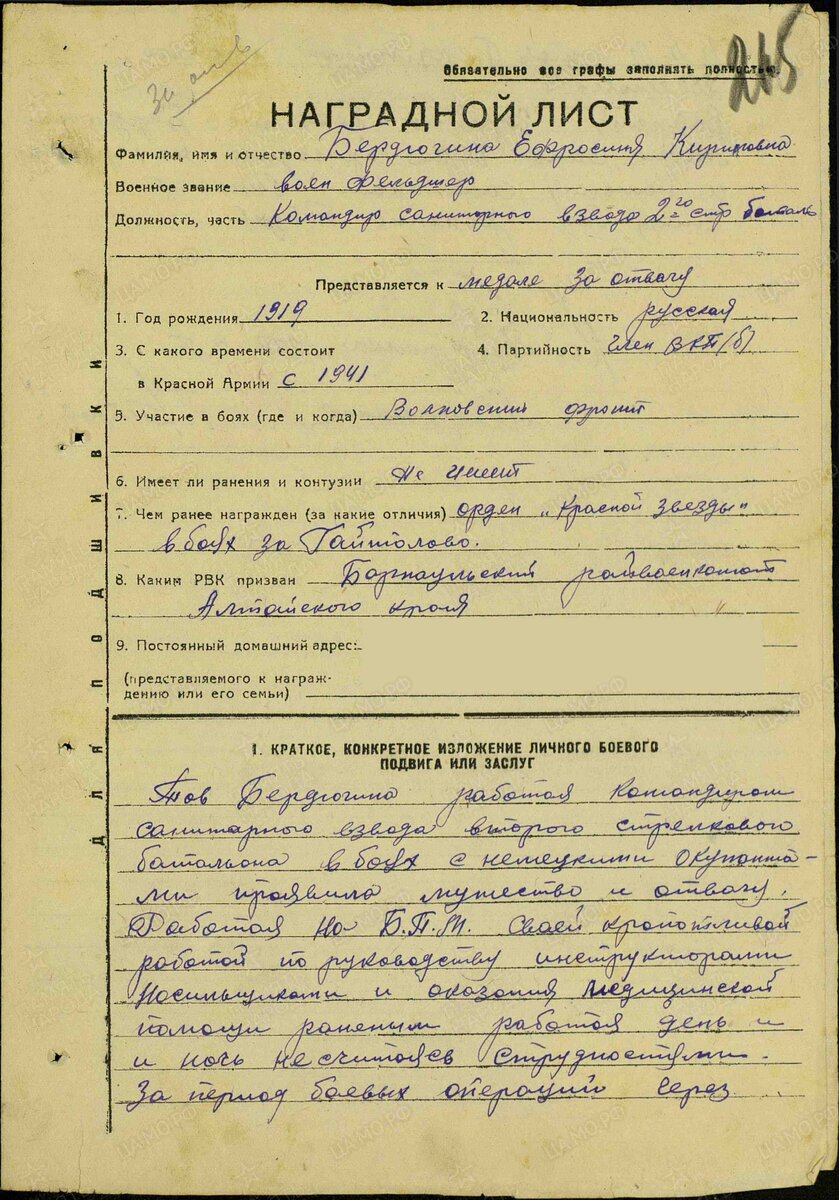 За отв
245
Обязательно все графы заполнять полностью.
НАГРАДНОЙ ЛИСТ
Фамилия, имя и отчество Бердюгина Ефросиня
Военное звание воен фельдшер
Должность, часть Командир санитарного взвода 2го стр баталь
Представляется к медале За отвагу
1. Год рождения 1919 2. Национальность русская
3. С какого времени состоит 4. Партийность член ВКП(б)
в Красной Армии с 1941
5. Участие в боях (где и когда) Волховский фронт
6. Имеет ли ранения и контузии Не имеет
7. Чем ранее награжден (за какие отличия) орден „Красной звезды"
в боях за Гайтолово.
8. Каким РВК призван Барнаульский райвоенкомат
Алтайского края
9. Постоянный домашний адрес:
(представляемого к награж-
дению или его семьи)
ДЛЯ ПОДШИВКИ
1. КРАТКОЕ, КОНКРЕТНОЕ ИЗЛОЖЕНИЕ ЛИЧНОГО БОЕВОГО
ПОДВИГА ИЛИ ЗАСЛУГ
Тов Бердюгина работая командиром
санитарного взвода второго стрелкового
батальона в боях с немецкими окупанта-
ми проявила мужество и отвагу.
Работая на Б.П.М. своей кропотливой
работой по руководству инструкторами
носильщиками и оказания медицинской
помощи раненым работая день и
и ночь не считаясь с трудностями.
За период боевых операций через